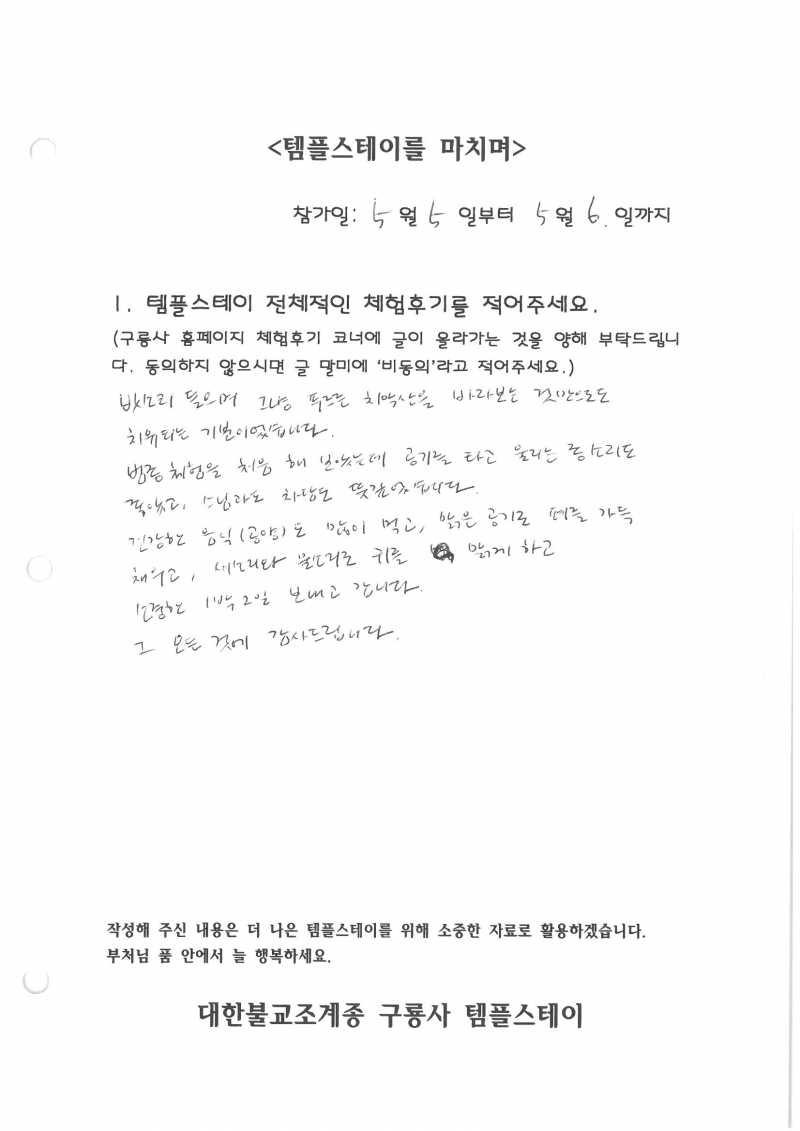 <템플스테이를 마치며>
참가일: 5월 5일부터 5월 6.일까지
1. 템플스테이 전체적인 체험후기를 적어주세요.
(구룡사 홈페이지 체험후기 코너에 글이 올라가는 것을 양해 부탁드립니
다. 동의하지 않으시면 글 말미에 '비동의'라고 적어주세요.)
들으며 그냥 푸르른 치악산을 바라보는 것만으로도
치유되는 기분이었습니다.
범종체험을 처음 해 보았는데 공기를 타고 울리는 종소리도
좋았고, 스님과도 차담도 뜻깊었습니다.
건강한 음식(공양)도 많이 먹고, 맑은 공기로 폐를 가득
채우고, 새소리와 물소리로 귀를 맑게 하고
소중한 1박2일 보내고 갑니다.
그 모든 것에 감사드립니다.
작성해 주신 내용은 더 나은 템플스테이를 위해 소중한 자료로 활용하겠습니다.
부처님 품 안에서 늘 행복하세요.
대한불교조계종 구룡사 템플스테이